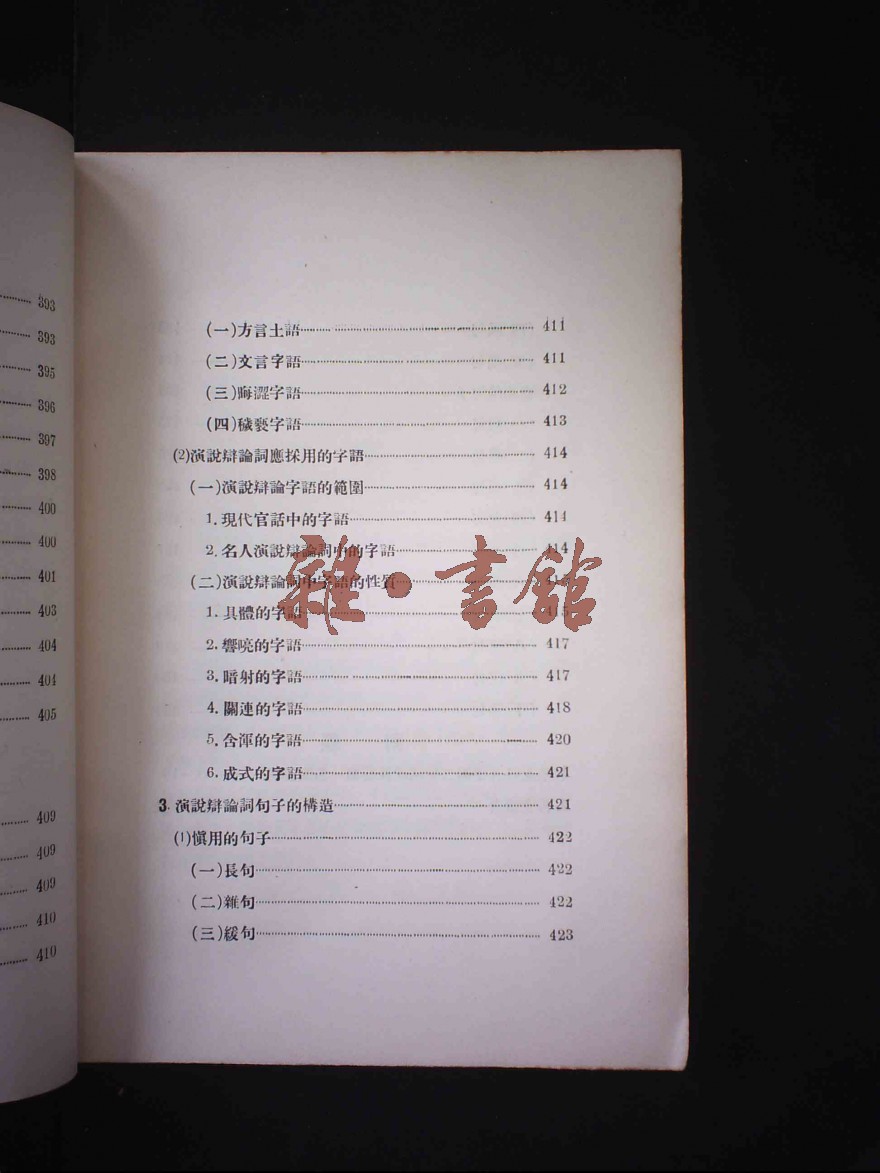 393
393
395
396
397
398
400
400
401
403
404
404
405
409
409
409
410
410
(一)方言土語 411
(二)文言字語 411
(三)晦澀字語 412
(四)穢褻字語 413
(2)演說辯論詞應採用的字語 414
(一)演說辯論字語的範圍 414
1. 現代官話中的字語 414
2. 名人演說辯論詞中的字語 414
(二)演說辯論詞中字語的性質
1. 具體的字語 415
2. 響喨的字語 417
3. 暗射的字語 417
4. 關連的字語 418
5. 含渾的字語 420
6. 成式的字語 421
3. 演說辯論詞句子的構造 421
(1)慎用的句子 422
(一)長句 422
(二)雜句 422
(三)緩句 423
雜·書館